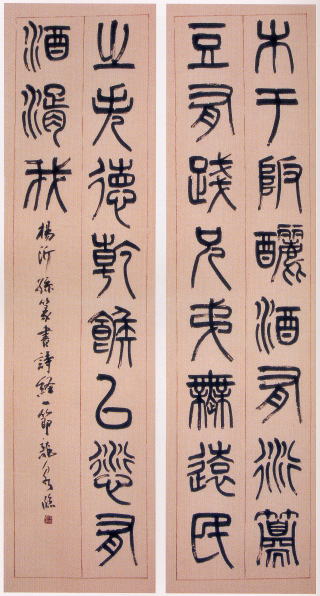 木于阪釃酒有衍籩
豆有踐兄弟無遠民
之失德乾餱以愆有
酒湑我
楊沂孫篆書詩經一節龍泉臨